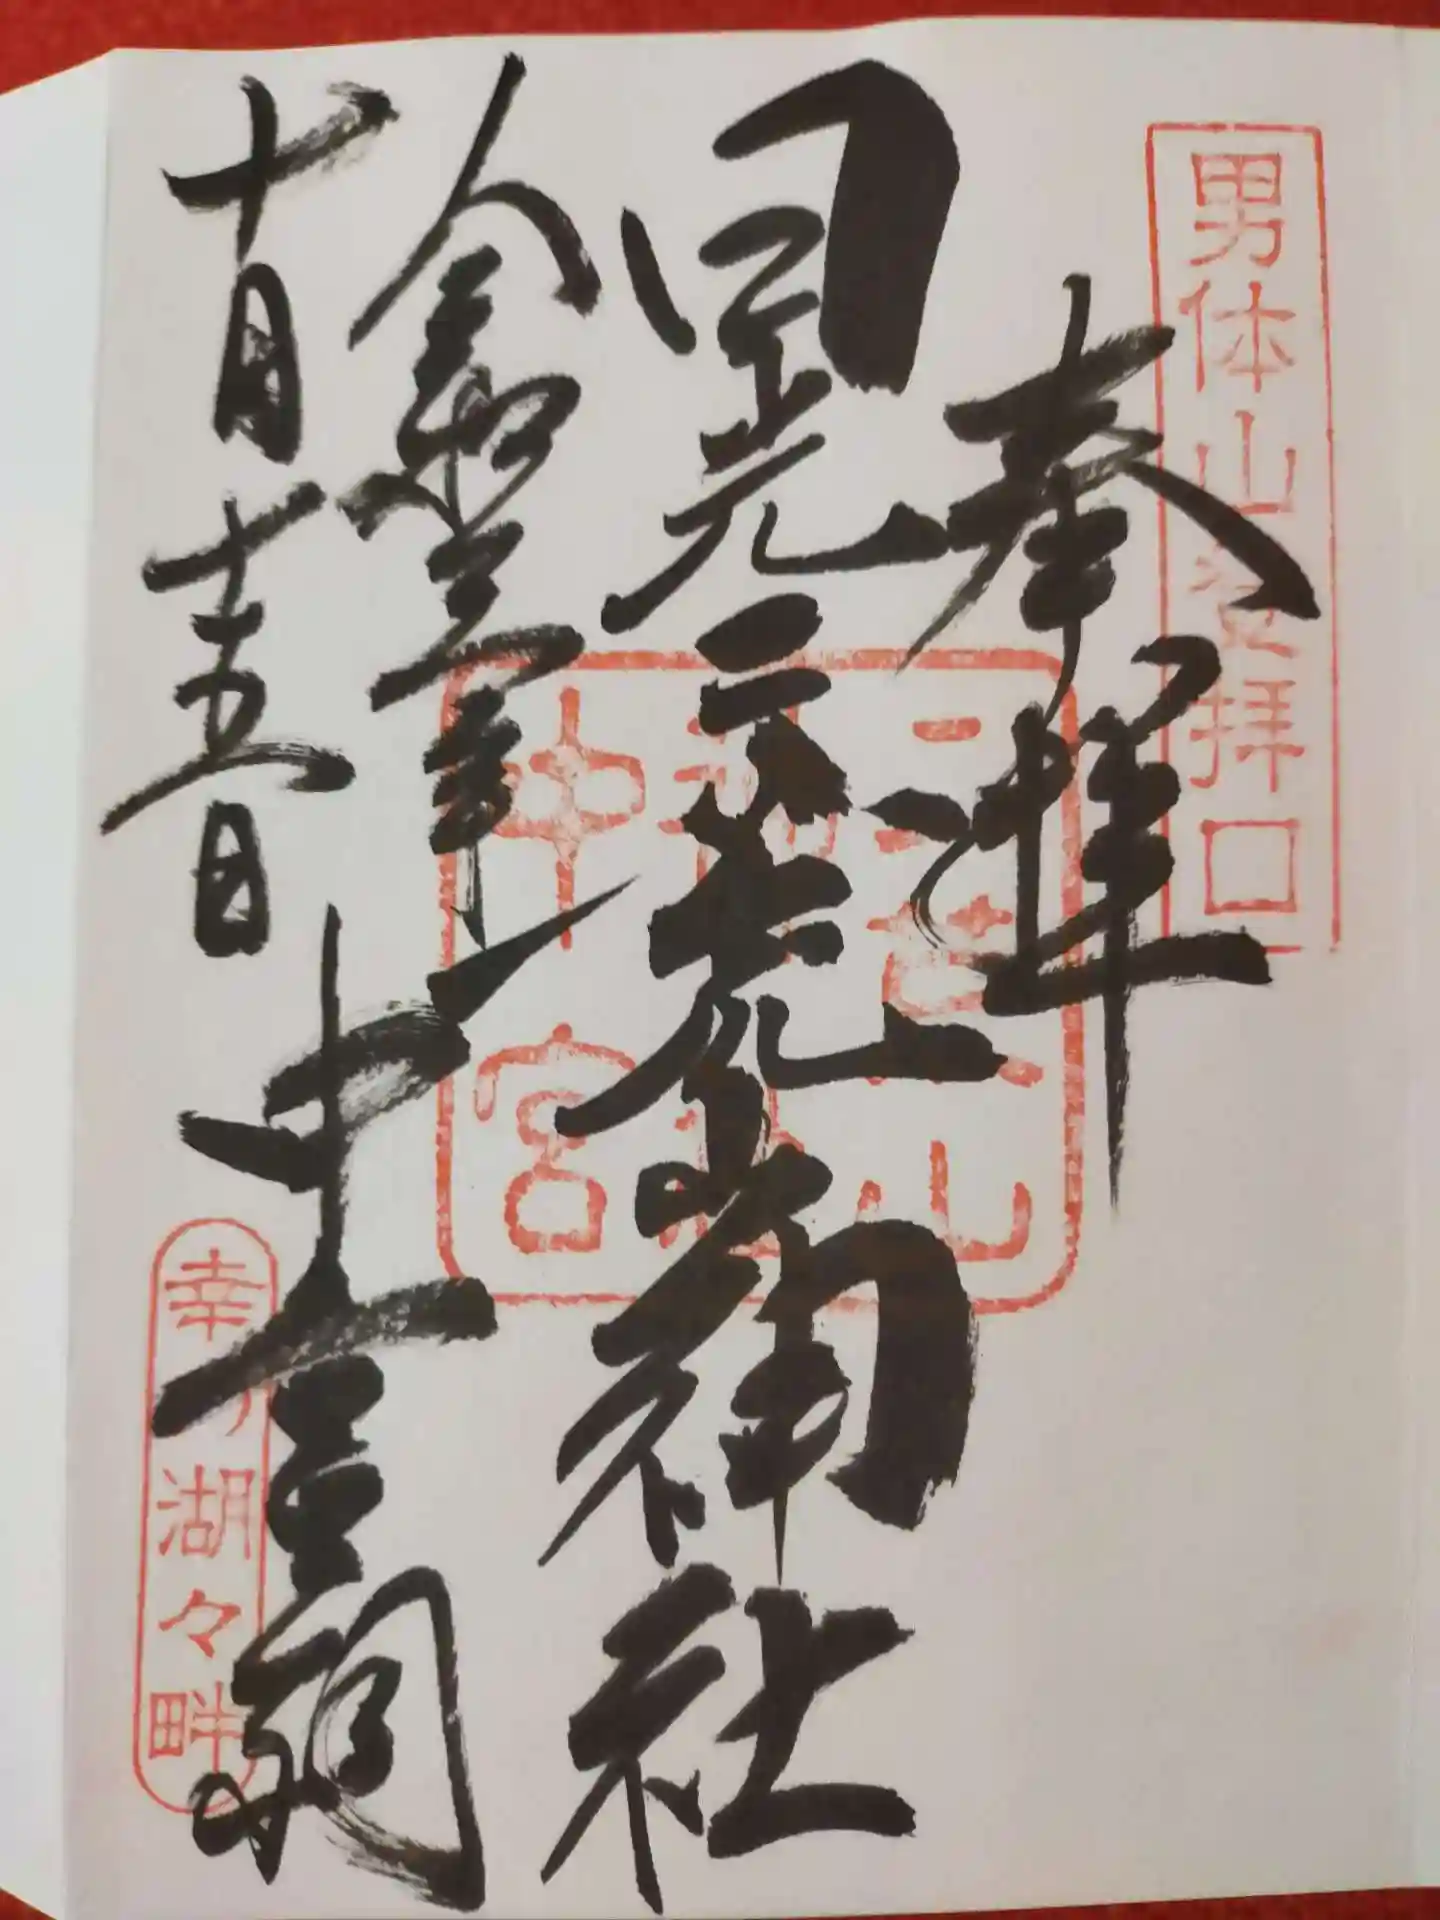 男体山登拝口
奉拝
日光二荒山神社
令和
年
十月十五日
中宮祠
二荒山
神社
中宮
幸の湖々畔